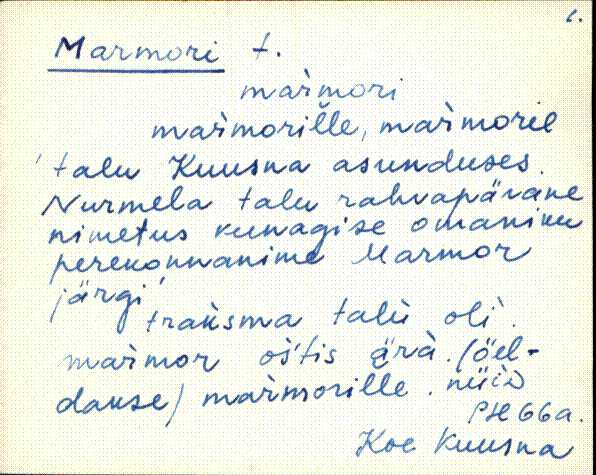 1.
Marmori t.
mar̀mori
mar̀morille, mar̀moril
'talu Kuusna asunduses.
Nurmela talu rahvapärane
nimetus kunagise omaniku
perekonnanime Marmor
järgi'
traḱsma talù oli.
mar̀mor oś̀tis ärà. (öel-
dakse) mar̀morille. nüid
PSE 66a.
Koe Kuusna